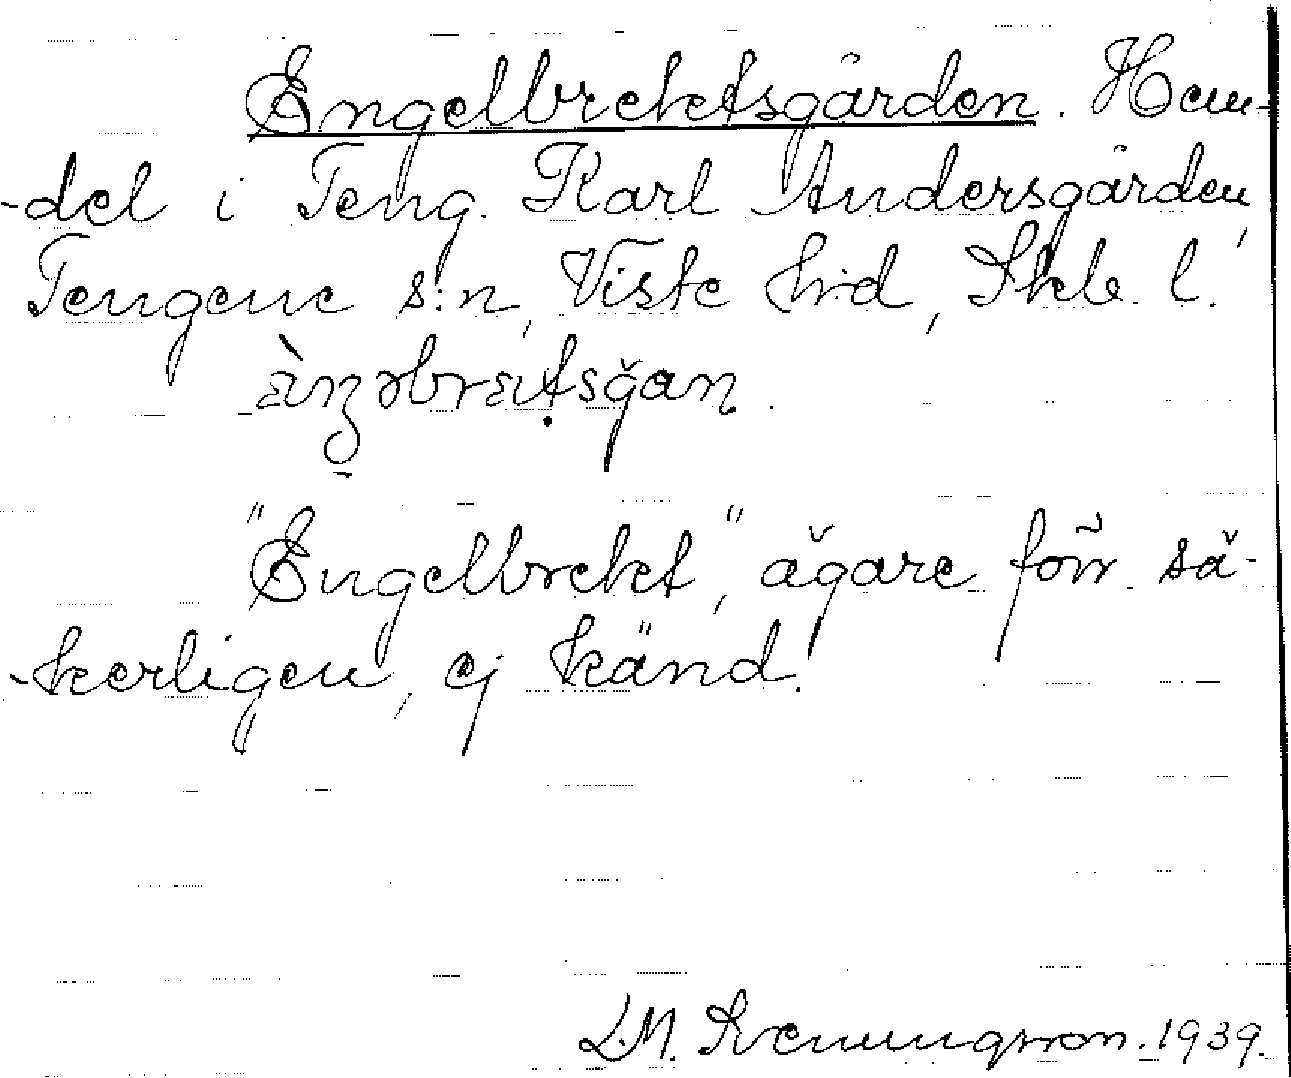 Engelbrektsgården. Hem-
-del i Teng. Karl Andersgården,
Tengene s:n, Viste hrd, Skb. l.
"Engelbrekt", ägare förr sä-
-kerligen, ej känd.
L.M. Svenungsson. 1939.